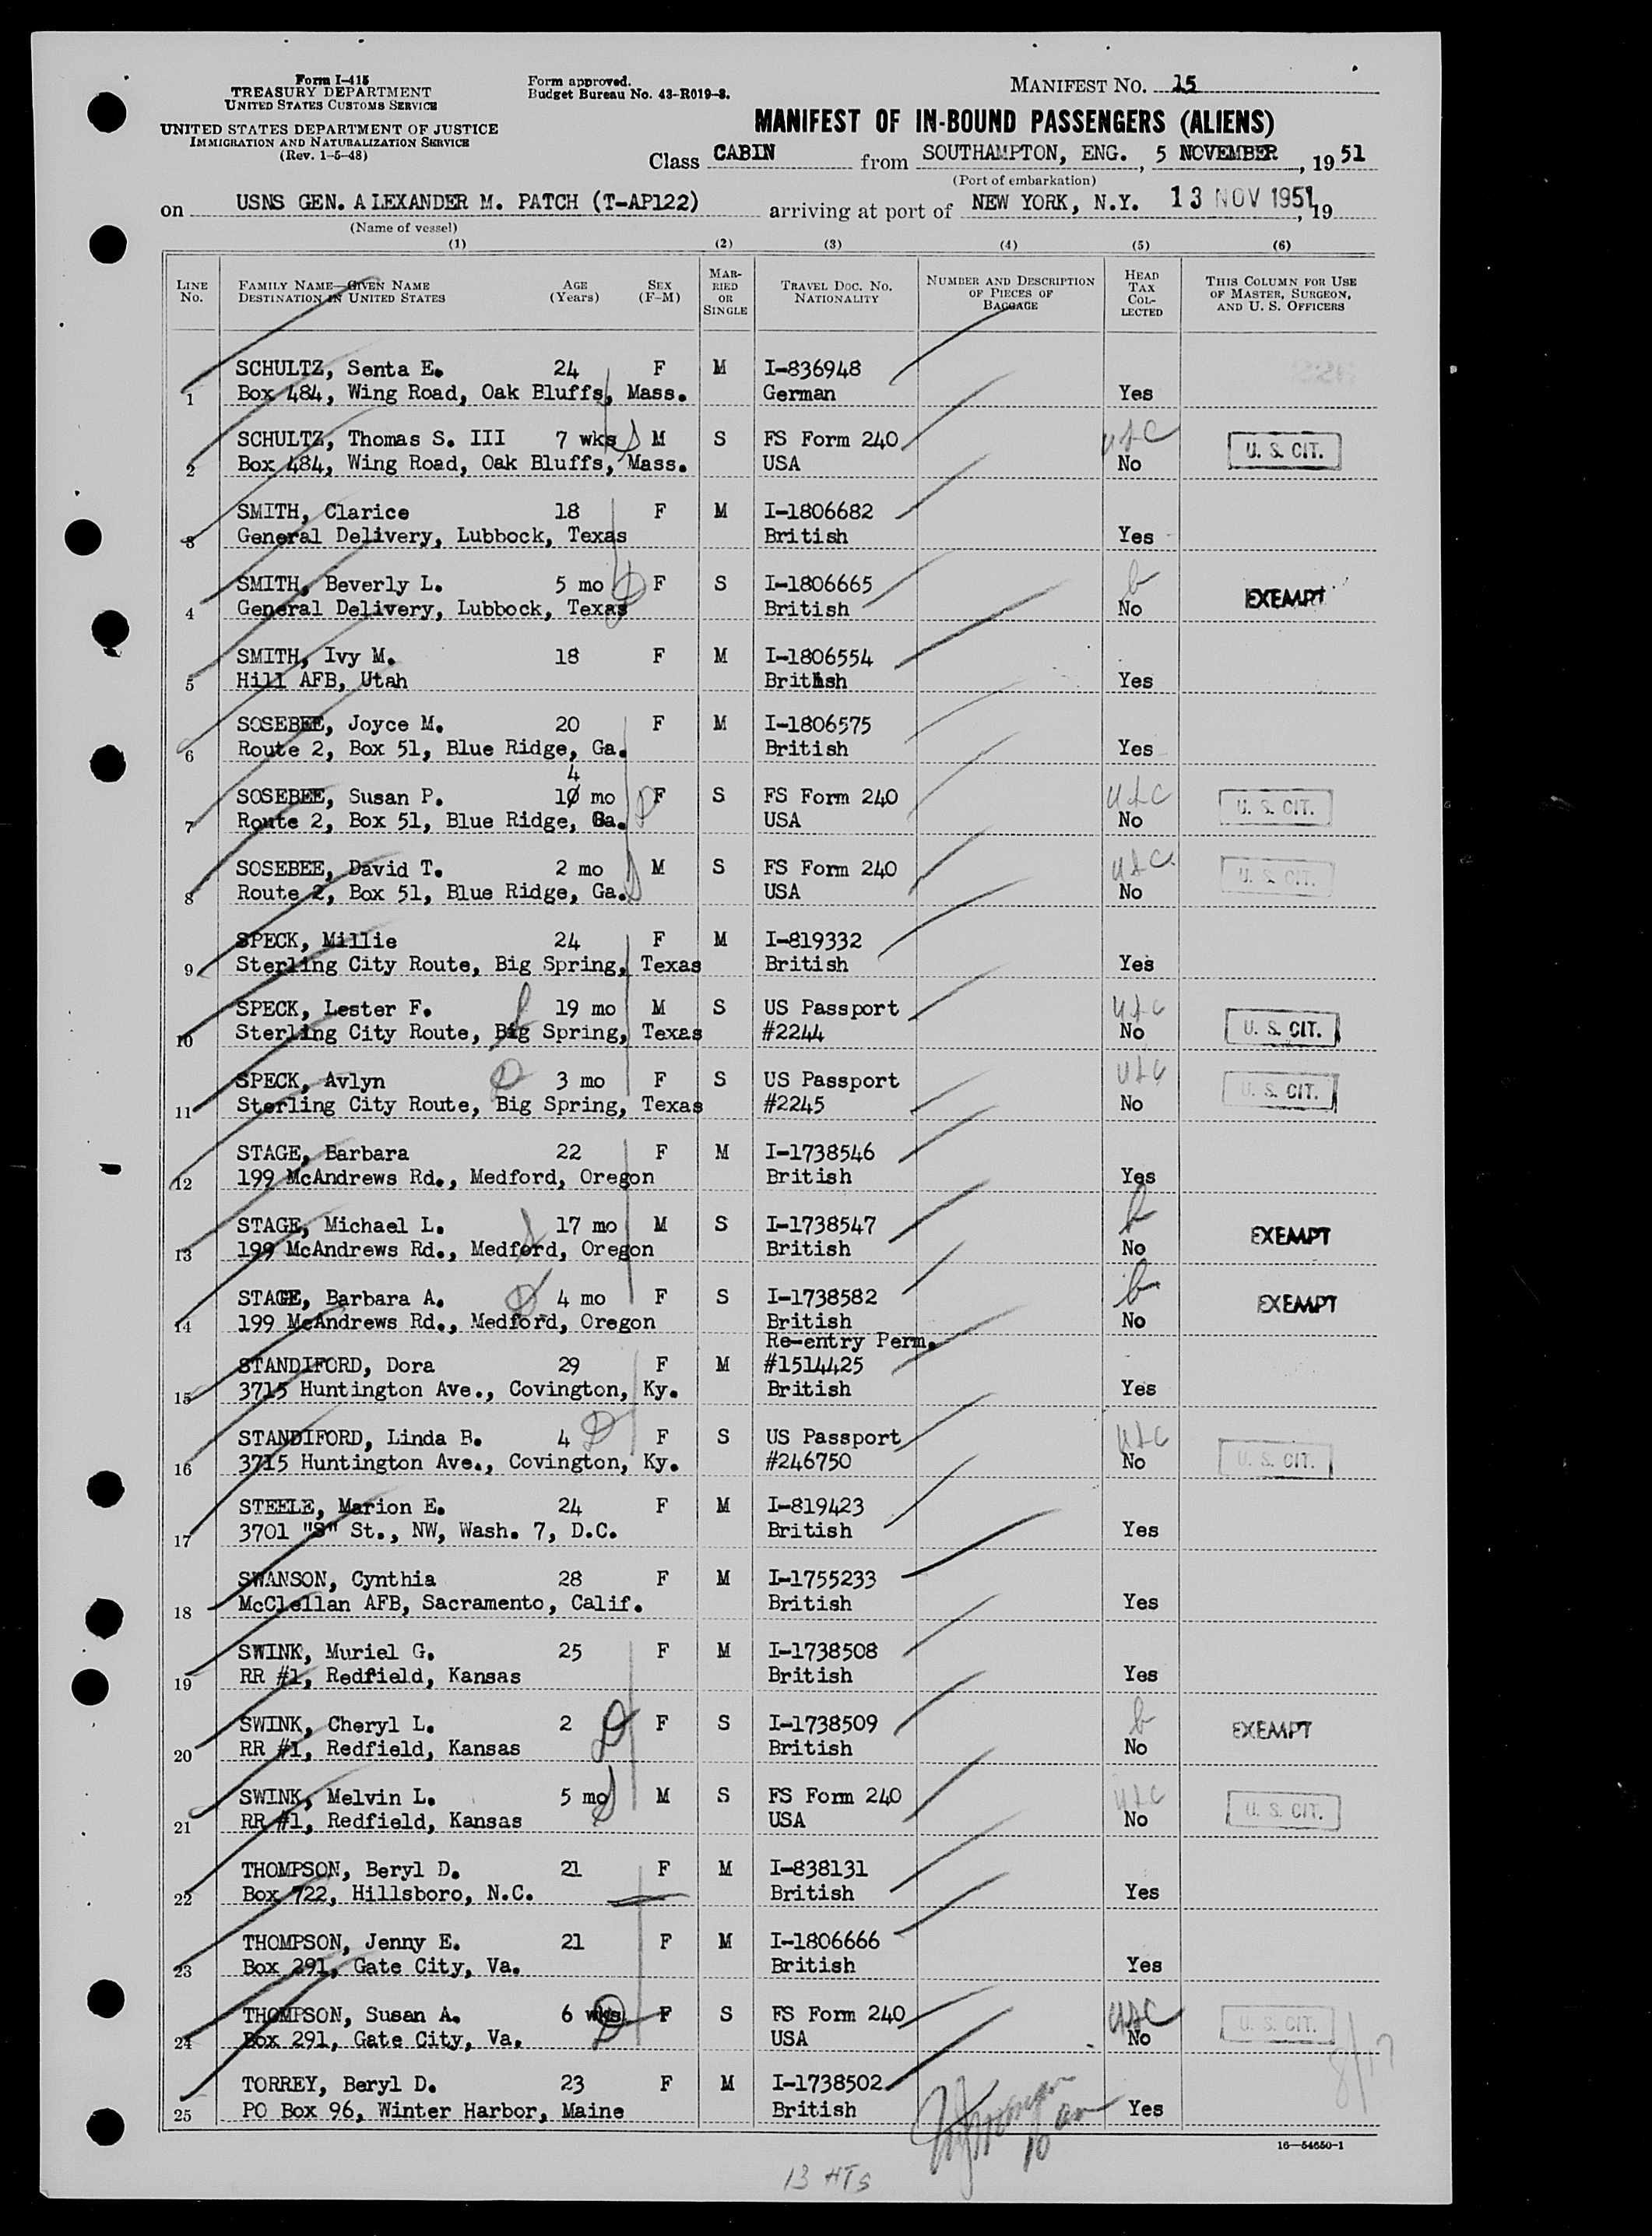 Form I-415
TREASURY DEPARTMENT
UNITED STATES CUSTOMS SERVICE
UNITED STATES DEPARTMENT OF JUSTICE
IMMIGRATION AND NATURALIZATION SERVICE
(Rev. 1-5-48)
Form approved.
Budget Bureau No. 43-R019-3.
MANIFEST NO. 15
MANIFEST OF IN-BOUND PASSENGERS (ALIENS)
Class CABIN from SOUTHAMPTON, ENG., 5 NOVEMBER, 1951
(Port of embarkation)
on USNS GEN. ALEXANDER M. PATCH (T-AP122) arriving at port of NEW YORK, N.Y. 13 NOV 1951, 19
(Name of vessel)
(1) (2) (3) (4) (5) (6)
LINE No. FAMILY NAME—GIVEN NAME DESTINATION IN UNITED STATES AGE (Years) SEX (F-M) MARRIED OR SINGLE TRAVEL DOC. NO. NATIONALITY NUMBER AND DESCRIPTION OF PIECES OF BAGGAGE HEAD TAX COLLECTED THIS COLUMN FOR USE OF MASTER, SURGEON, AND U. S. OFFICERS
SCHULTZ, Senta E. 24 F M I-836948
1 Box 484, Wing Road, Oak Bluffs, Mass. German Yes
SCHULTZ, Thomas S. III 7 wks M S FS Form 240 USC U. S. CIT.
2 Box 484, Wing Road, Oak Bluffs, Mass. USA No
SMITH, Clarice 18 F M I-1806682
3 General Delivery, Lubbock, Texas British Yes
SMITH, Beverly L. 5 mo F S I-1806665 EXEMPT
4 General Delivery, Lubbock, Texas British No
SMITH, Ivy M. 18 F M I-1806554
5 Hill AFB, Utah British Yes
SOSEBEE, Joyce M. 20 F M I-1806575
6 Route 2, Box 51, Blue Ridge, Ga. British Yes
4
SOSEBEE, Susan P. 10 mo F S FS Form 240 USC U. S. CIT.
7 Route 2, Box 51, Blue Ridge, Ga. USA No
SOSEBEE, David T. 2 mo M S FS Form 240 USC U. S. CIT.
8 Route 2, Box 51, Blue Ridge, Ga. USA No
SPECK, Millie 24 F M I-819332
9 Sterling City Route, Big Spring, Texas British Yes
SPECK, Lester F. 19 mo M S US Passport USC U. S. CIT.
10 Sterling City Route, Big Spring, Texas #2244 No
SPECK, Avlyn 3 mo F S US Passport USC U. S. CIT.
11 Sterling City Route, Big Spring, Texas #2245 No
STAGE, Barbara 22 F M I-1738546
12 199 McAndrews Rd., Medford, Oregon British Yes
STAGE, Michael L. 17 mo M S I-1738547 EXEMPT
13 199 McAndrews Rd., Medford, Oregon British No
STAGE, Barbara A. 4 mo F S I-1738582 EXEMPT
14 199 McAndrews Rd., Medford, Oregon British No
Re-entry Perm.
STANDIFORD, Dora 29 F M #1514425
15 3715 Huntington Ave., Covington, Ky. British Yes
STANDIFORD, Linda B. 4 F S US Passport USC U. S. CIT.
16 3715 Huntington Ave., Covington, Ky. #246750 No
STEELE, Marion E. 24 F M I-819423
17 3701 "S" St., NW, Wash. 7, D.C. British Yes
SWANSON, Cynthia 28 F M I-1755233
18 McClellan AFB, Sacramento, Calif. British Yes
SWINK, Muriel G. 25 F M I-1738508
19 RR #1, Redfield, Kansas British Yes
SWINK, Cheryl L. 2 F S I-1738509 EXEMPT
20 RR #1, Redfield, Kansas British No
SWINK, Melvin L. 5 mo M S FS Form 240 USC U. S. CIT.
21 RR #1, Redfield, Kansas USA No
THOMPSON, Beryl D. 21 F M I-838131
22 Box 722, Hillsboro, N.C. British Yes
THOMPSON, Jenny E. 21 F M I-1806666
23 Box 291, Gate City, Va. British Yes
THOMPSON, Susan A. 6 wks F S FS Form 240 USC U. S. CIT.
24 Box 291, Gate City, Va. USA No
TORREY, Beryl D. 23 F M I-1738502
25 PO Box 96, Winter Harbor, Maine British Yes
16—54650-1
13 HTS